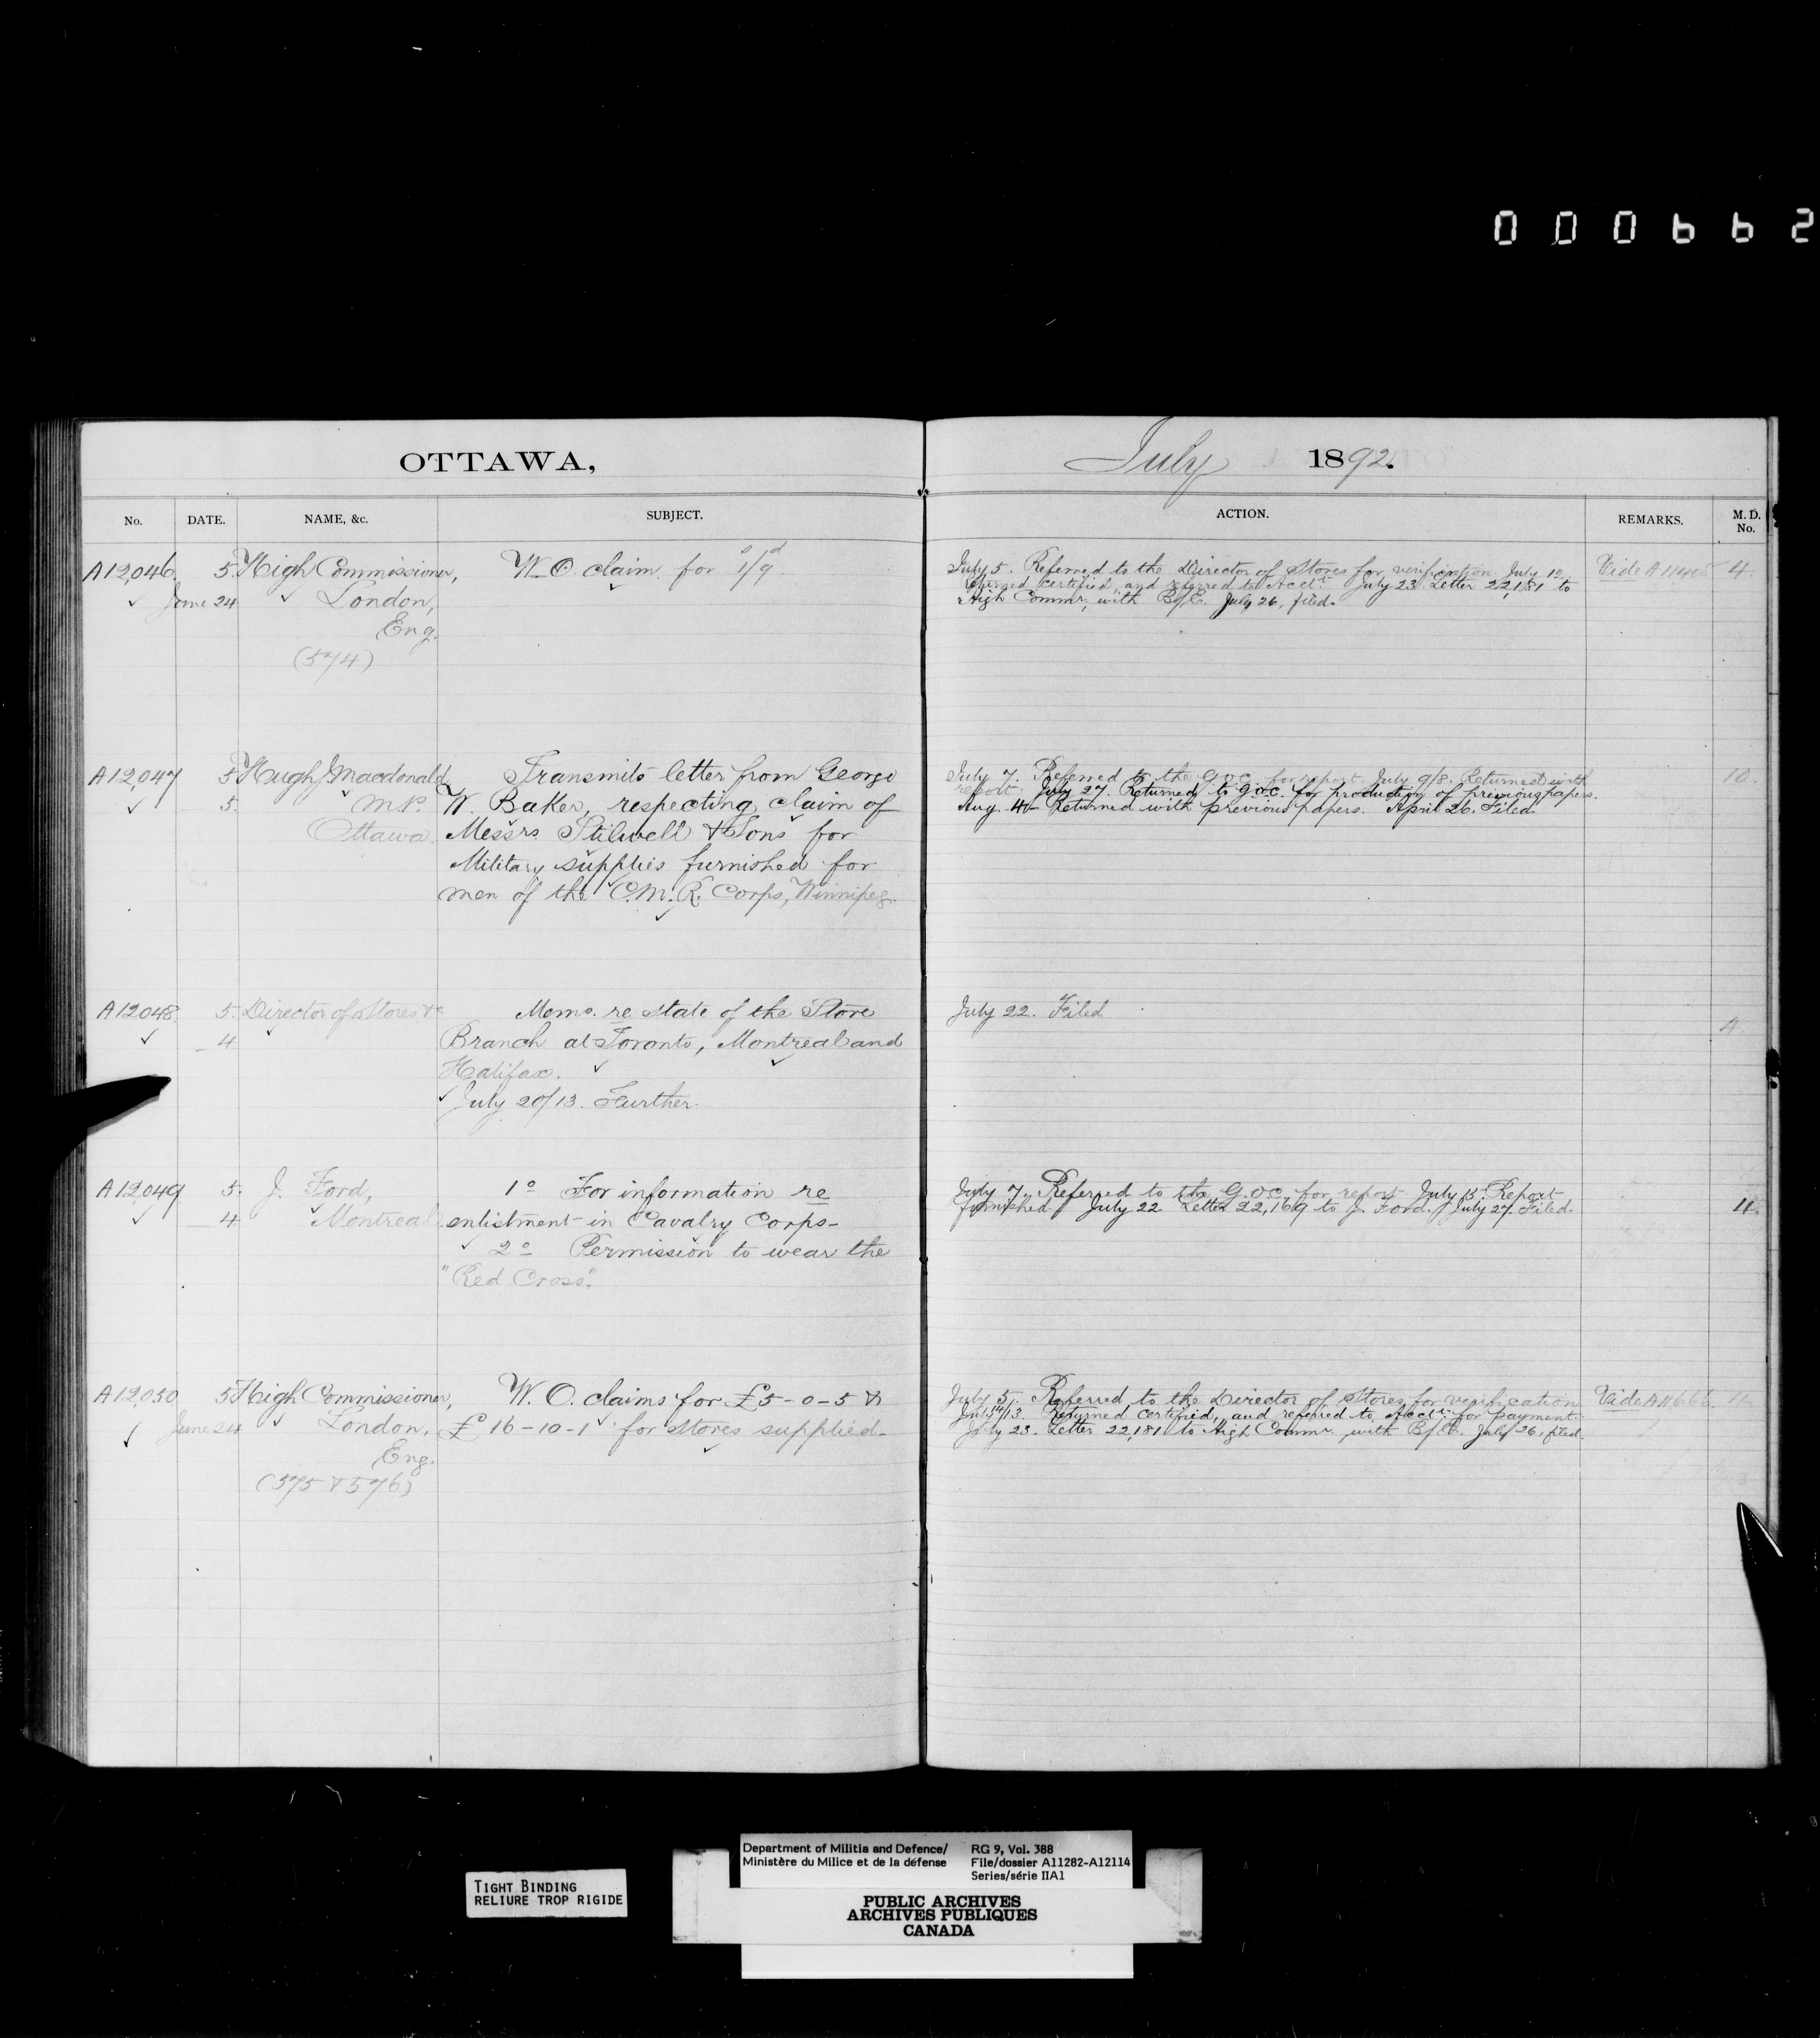 000662
OTTAWA,
July 1892.
No. DATE. NAME, &c. SUBJECT. ACTION. REMARKS. M. D. No.
A12,046. 5. High Commissioner, W. O. claim for 1s/9d
June 24 London,
Eng.
(574)
July 5. Referred to the Director of Stores for verification. July 12.
Returned certified, and referred to Acct. July 23. Letter 22,181 to
High Commr, with B/E. July 26, filed.
Vide A11405 4.
A12,047 5 Hugh J Macdonald Transmits letter from George
5. M.P. W. Baker, respecting claim of
Ottawa. Messrs. Stilwell & Sons for
Military supplies furnished for
men of the C.M.R. Corps, Winnipeg.
July 7. Referred to the G.O.C. for report. July 9/8. Returned with
report. July 27. Returned to G.O.C. for production of previous papers.
Aug. 4 Returned with previous papers. April 26. Filed.
10.
A12048. 5. Director of Stores &c Memo. re state of the Store
4 Branch at Toronto, Montreal and
Halifax.
July 20/13. Further.
July 22. Filed
4.
A12049 5. J. Ford, 1o For information re
4 Montreal enlistment in Cavalry Corps-
2o Permission to wear the
"Red Cross".
July 7. Referred to the G.O.C. for report. July 15. Report
furnished. July 22 Letter 22,169 to J. Ford. July 27. Filed.
A12,050 5 High Commissioner, W. O. claims for £5-0-5 &
June 24 London, £16-10-1 for stores supplied-
Eng.
(575 & 576)
July 5. Referred to the Director of Stores for verification
July 14/13. Returned certified, and referred to Acct. for payment.
July 23. Letter 22,181 to High Commr. with B/E. July 26, filed.
Vide
TIGHT BINDING
RELIURE TROP RIGIDE
Department of Militia and Defence/ RG 9, Vol. 388
Ministère du Milice et de la défense File/dossier A11282-A12114
Series/série IIA1
PUBLIC ARCHIVES
ARCHIVES PUBLIQUES
CANADA